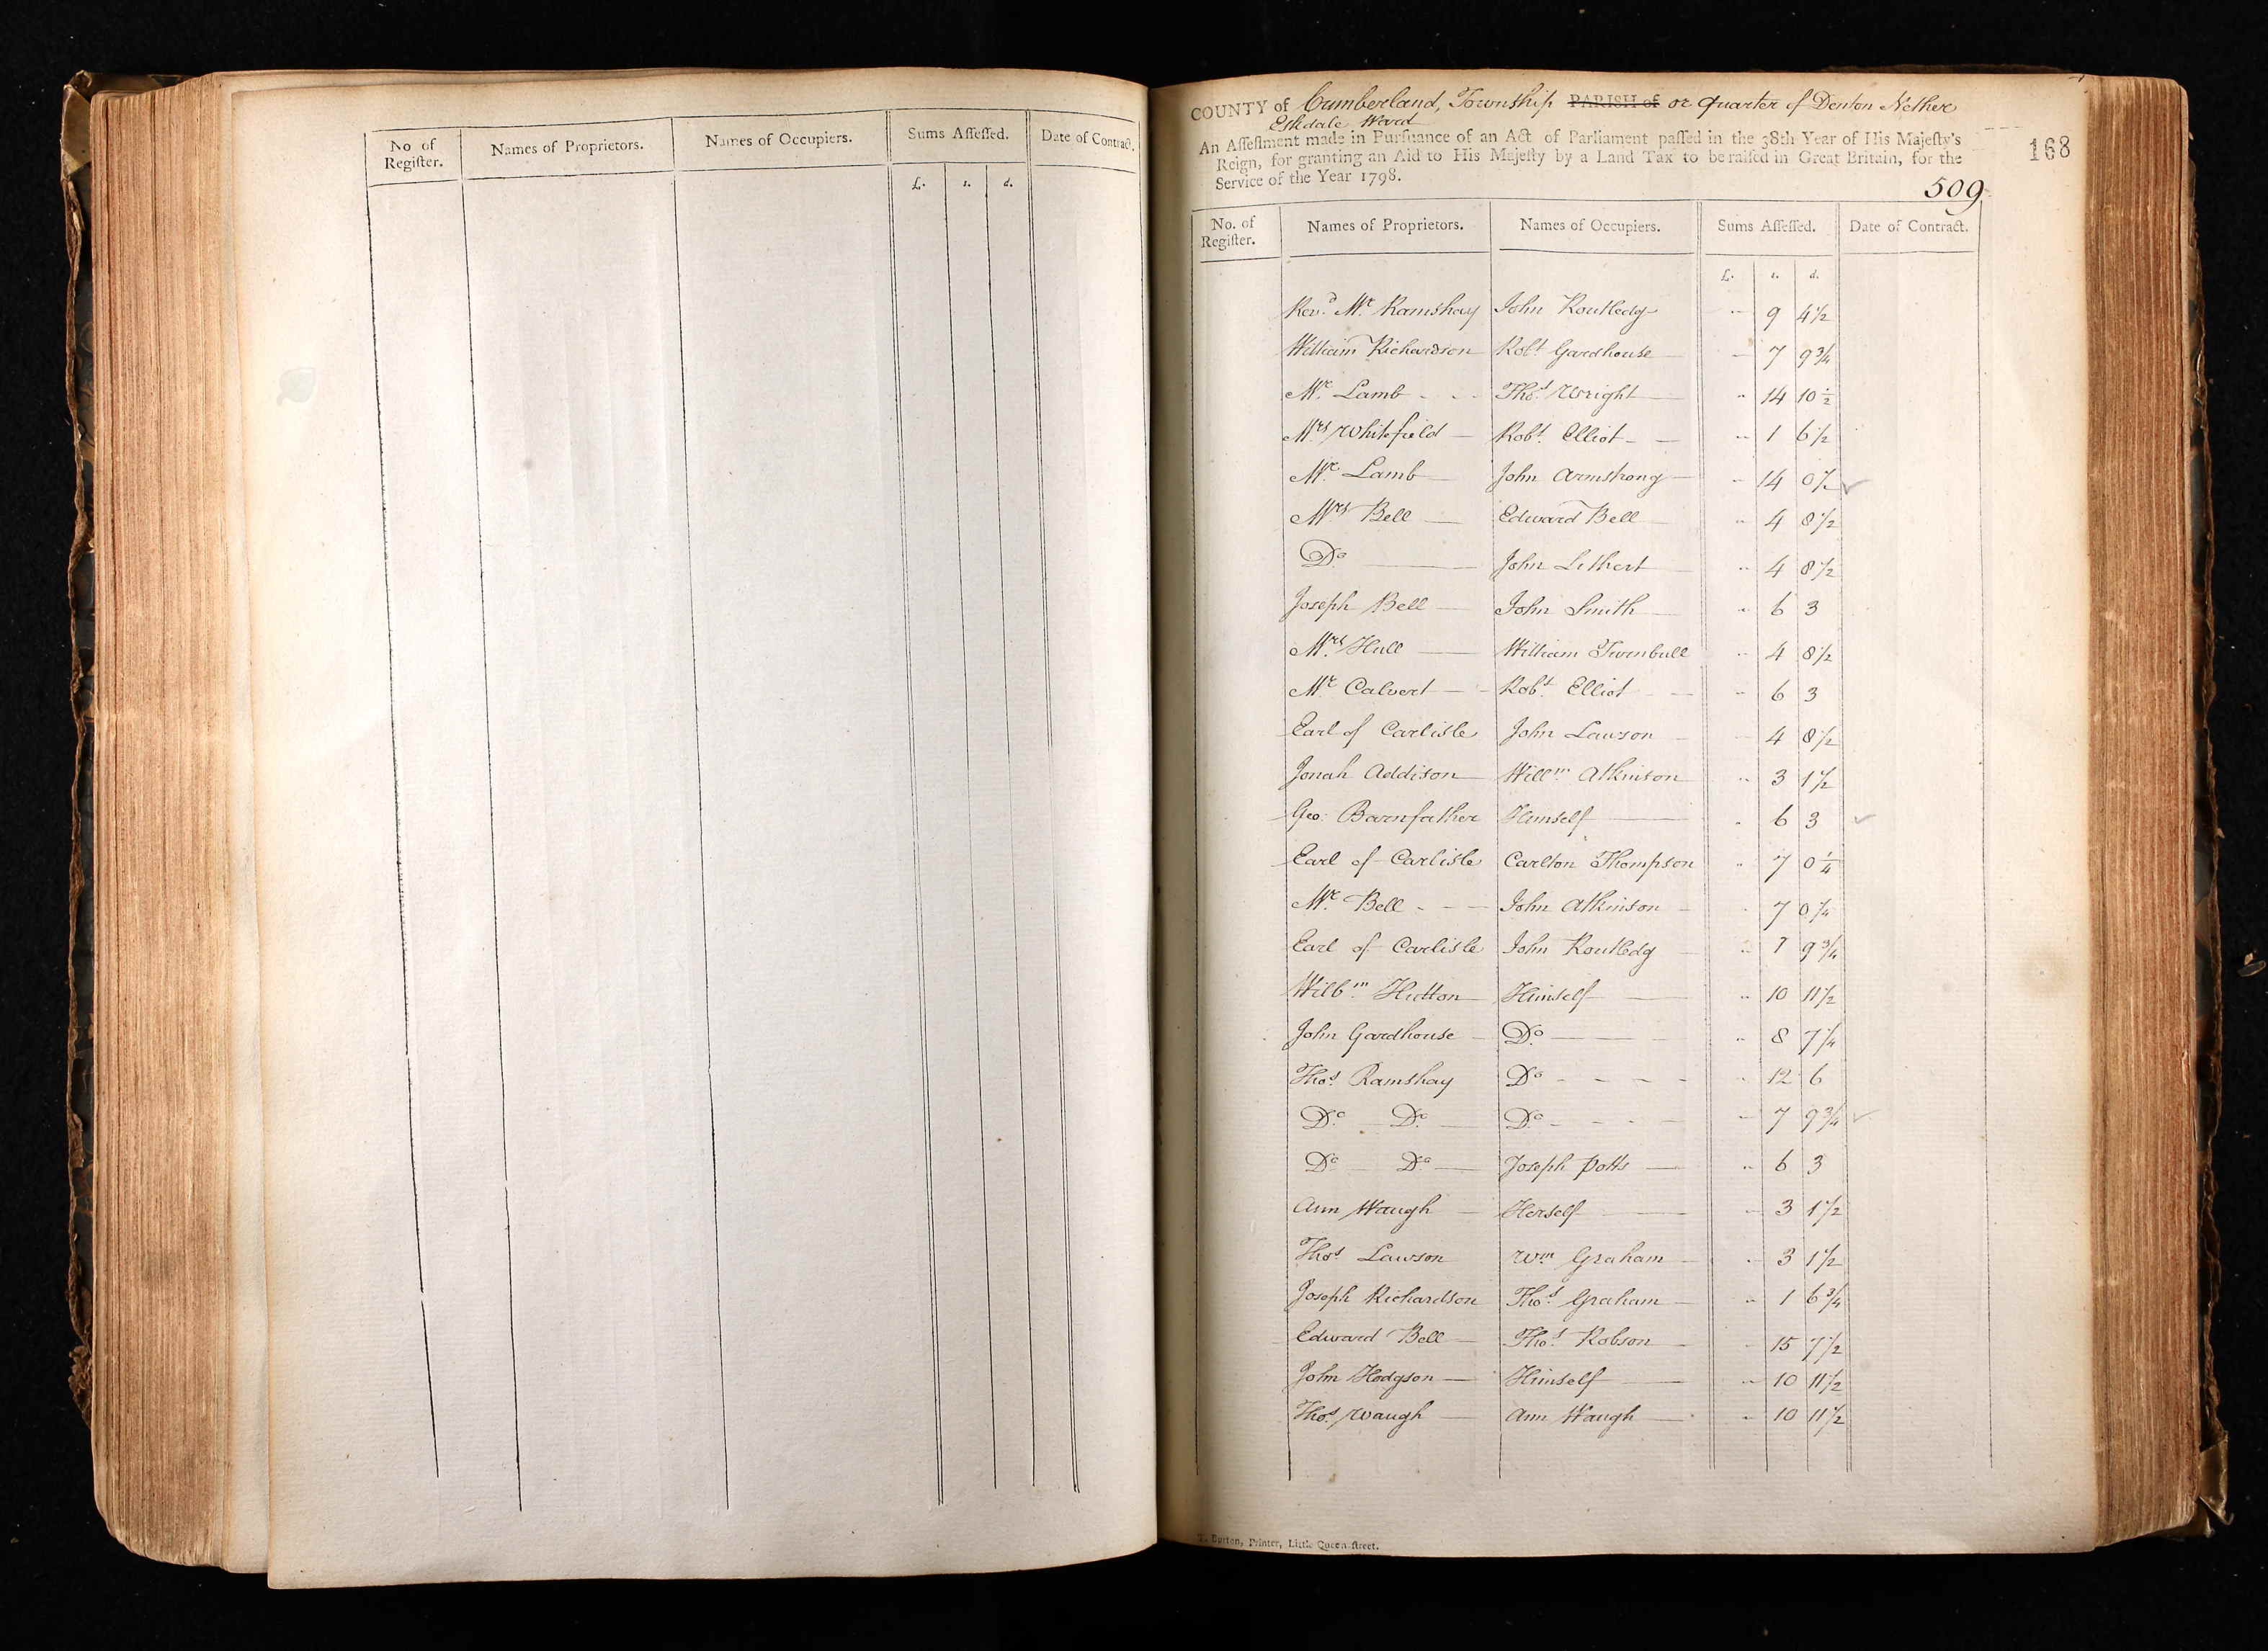 No of Register. Names of Proprietors. Names of Occupiers. Sums Aſſeſſed. Date of Contract.
£. s. d.
COUNTY of Cumberland, Township PARISH of or Quarter of Denton Nether
Eskdale Ward
An Aſſeſſment made in Purſuance of an Act of Parliament paſſed in the 38th Year of His Majeſty's
Reign, for granting an Aid to His Majeſty by a Land Tax to be raiſed in Great Britain, for the
Service of the Year 1798.
168
509
No. of Regiſter. Names of Proprietors. Names of Occupiers. Sums Aſſeſſed. Date of Contract.
£. s. d.
Revd. Mr. Ramshay John Routledg 9 4½
William Richardson Robt Gardhouse 7 9¾
Mr. Lamb Thos. Wright 14 10½
Mrs Whitefield Robt. Elliot 1 6½
Mr. Lamb John Armstrong 14 0½
Mrs Bell Edward Bell 4 8½
Do. John Lethert 4 8½
Joseph Bell John Smith 6 3
Mrs. Hull William Turnbull 4 8½
Mr Calvert Robt. Elliot 6 3
Earl of Carlisle John Lawson 4 8½
Jonah Addison Willm. Atkinson 3 1½
Geo: Barnfather Himself 6 3
Earl of Carlisle Carlton Thompson 7 0¼
Mr. Bell John Atkinson 7 0¼
Earl of Carlisle John Routledg 7 9¾
Willm. Hutton Himself 10 11½
John Gardhouse Do. 8 7¼
Thos. Ramshay Do 12 6
Do. Do. Do. 7 9¾
Do Do. Joseph Potts 6 3
Ann Waugh Herself 3 1½
Thos Lawson Wm. Graham 3 1½
Joseph Richardson Thos. Graham 1 6¾
Edward Bell Thos. Robson 15 7½
John Hodgson Himself 10 11½
Thos. Waugh Ann Waugh 10 11½
Burton, Printer, Little Queen-ſtreet.